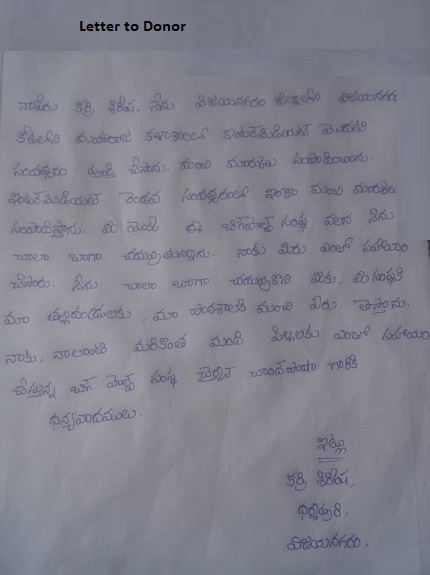 Letter to Donor
నాపేరు కర్రి శిరీష. నేను విజయనగరం జిల్లాలోని విజయనగరం
కోటలోని మహారాజ కళాశాలలో ఇంటర్మీడియట్ మొదటి
సంవత్సరం పూర్తి చేసాను. మంచి మార్కులు సంపాదించాను.
ఇంటర్మీడియట్ రెండవ సంవత్సరంలో ఇంకా మంచి మార్కులు
సంపాదిస్తాను. మీ నుండి ఈ బిగ్‌హెల్ప్ సంస్థ వలన నేను
చాలా బాగా చదువుతున్నాను. నాకు మీరు ఎంతో సహాయం
చేసారు. నేను చాలా బాగా చదువుకొని మీకు, మీ సంస్థకి
మా తల్లిదండ్రులకు, మా పాఠశాలకి మంచి పేరు తెస్తాను.
నాకు, నాలాంటి మరికొంత మంది పిల్లలకు ఎంతో సహాయం
చేస్తున్న బిగ్ హెల్ప్ సంస్థ చైర్మన్ చాంద్‌పాషా గారికి
ధన్యవాదములు.
ఇట్లు
కర్రి శిరీష,
ధర్మపురి,
విజయనగరం.